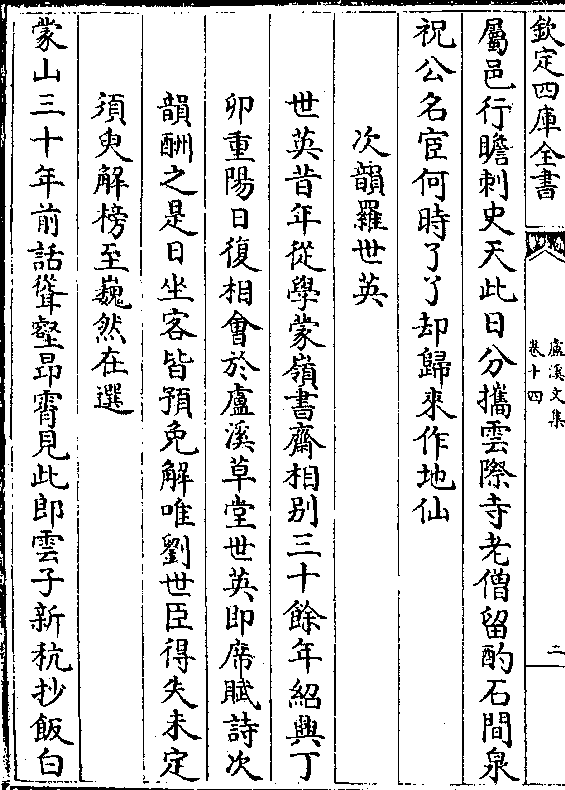 欽定四庫全書
盧溪文集
卷十四
二
屬邑行瞻刺史天此日分攜雲際寺老僧留酌石間泉
祝公名宦何時了了却歸來作地仙
次韻羅世英
世英昔年從學蒙嶺書齋相别三十餘年紹興丁
卯重陽日復相會於盧溪草堂世英即席賦詩次
韻酬之是日坐客皆預免解唯劉世臣得失未定
須臾解榜至巍然在選
蒙山三十年前話聳壑昂霄見此郎雲子新秔抄飯白